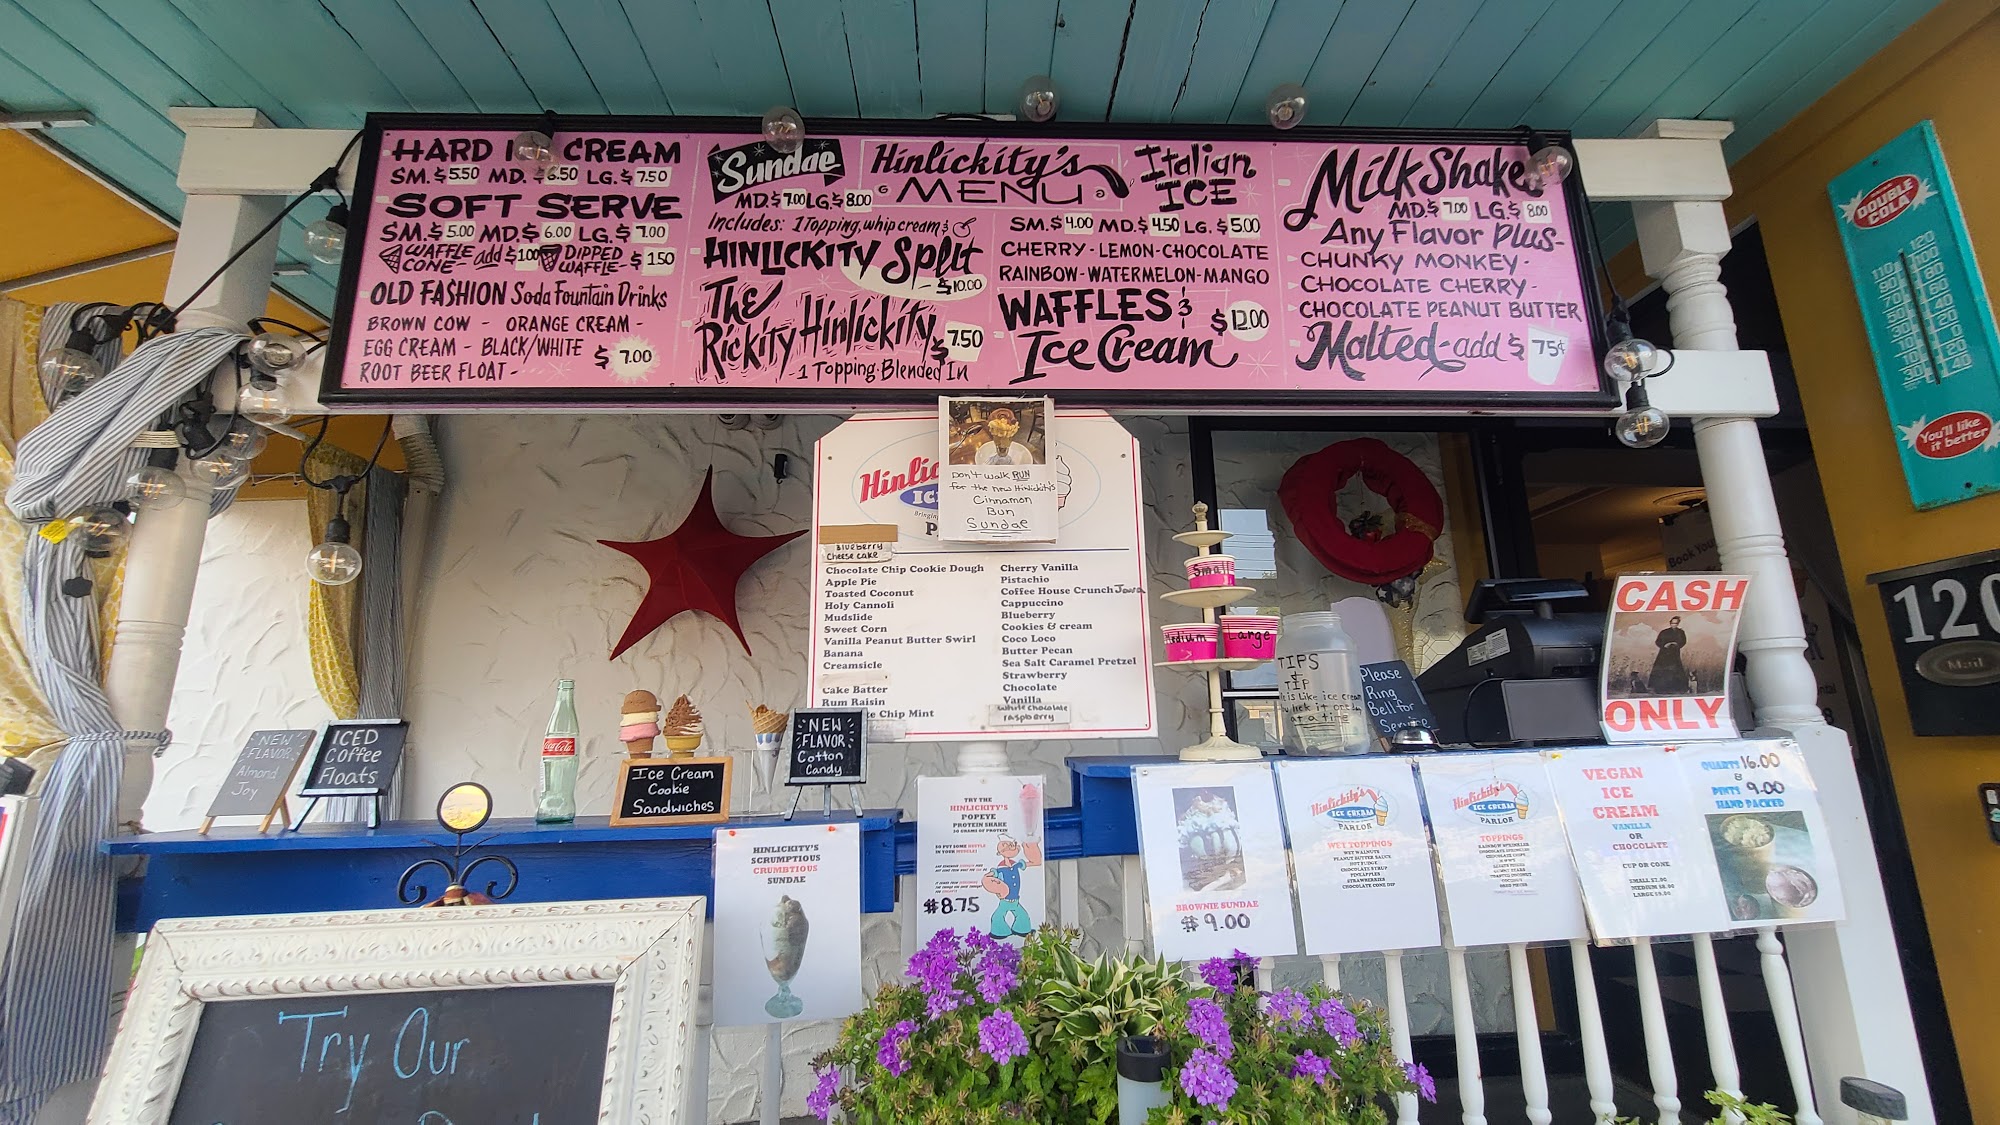 HARD ICE CREAM
SM. $5.50 MD. $6.50 LG. $7.50
SOFT SERVE
SM. $5.00 MD. $6.00 LG. $7.00
WAFFLE CONE add $1.00 DIPPED WAFFLE $1.50
OLD FASHION Soda Fountain Drinks
BROWN COW - ORANGE CREAM -
EGG CREAM - BLACK/WHITE
ROOT BEER FLOAT -
$7.00
Sundae
MD. $7.00 LG. $8.00
Includes: 1 Topping, whip cream &
HINLICKITY Split
$10.00
The
Rickity Hinlickity
$7.50
1 Topping Blended In
Hinlickity's
MENU
Italian
ICE
SM. $4.00 MD. $4.50 LG. $5.00
CHERRY - LEMON - CHOCOLATE
RAINBOW - WATERMELON - MANGO
WAFFLES &
Ice Cream
$12.00
MilkShakes
MD. $7.00 LG. $8.00
Any Flavor Plus-
CHUNKY MONKEY -
CHOCOLATE CHERRY -
CHOCOLATE PEANUT BUTTER
Malted - add $ 75¢
DRINK
DOUBLE
COLA
You'll like
it better
120
Mail
Don't walk RUN
for the new Hinlickity's
Cinnamon
Bun
Sundae
Hinlic
IC
P
Blueberry
Cheese cake
Chocolate Chip Cookie Dough
Apple Pie
Toasted Coconut
Holy Cannoli
Mudslide
Sweet Corn
Vanilla Peanut Butter Swirl
Banana
Creamsicle
Cake Batter
Rum Raisin
te Chip Mint
Cherry Vanilla
Pistachio
Coffee House Crunch Java
Cappuccino
Blueberry
Cookies & cream
Coco Loco
Butter Pecan
Sea Salt Caramel Pretzel
Strawberry
Chocolate
Vanilla
White chocolate
raspberry
Small
Medium
Large
TIPS
TIP
is like ice cream
lick it one
at a time
Please
Ring
Bell for
Service
Book Your
CASH
ONLY
NEW
FLAVOR
Almond
Joy
ICED
Coffee
Floats
Coca-Cola
Ice Cream
Cookie
Sandwiches
NEW
FLAVOR
Cotton
Candy
HINLICKITY'S
SCRUMPTIOUS
CRUMBTIOUS
SUNDAE
TRY THE
HINLICKITY'S
POPEYE
PROTEIN SHAKE
30 GRAMS OF PROTEIN
$8.75
BROWNIE SUNDAE
$9.00
Hinlickity's
ICE CREAM
PARLOR
WET TOPPINGS
WET WALNUTS
PEANUT BUTTER SAUCE
HOT FUDGE
CHOCOLATE SYRUP
PINEAPPLES
STRAWBERRIES
CHOCOLATE CONE DIP
Hinlickity's
ICE CREAM
PARLOR
TOPPINGS
RAINBOW SPRINKLES
CHOCOLATE SPRINKLES
CHOCOLATE CHIPS
GUMMY BEARS
TOASTED COCONUT
COCONUT
OREO PIECES
VEGAN
ICE
CREAM
VANILLA
OR
CHOCOLATE
CUP OR CONE
SMALL $7.00
MEDIUM $8.00
LARGE $9.00
QUARTS 16.00
&
PINTS 9.00
HAND PACKED
Try Our